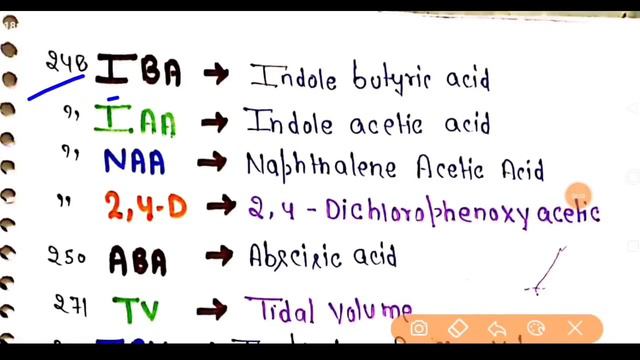 248 IBA → Indole butyric acid
" IAA → Indole acetic acid
" NAA → Naphthalene Acetic Acid
" 2,4-D → 2,4-Dichlorophenoxy acetic
250 ABA → Abscisic acid
271 TV → Tidal Volume